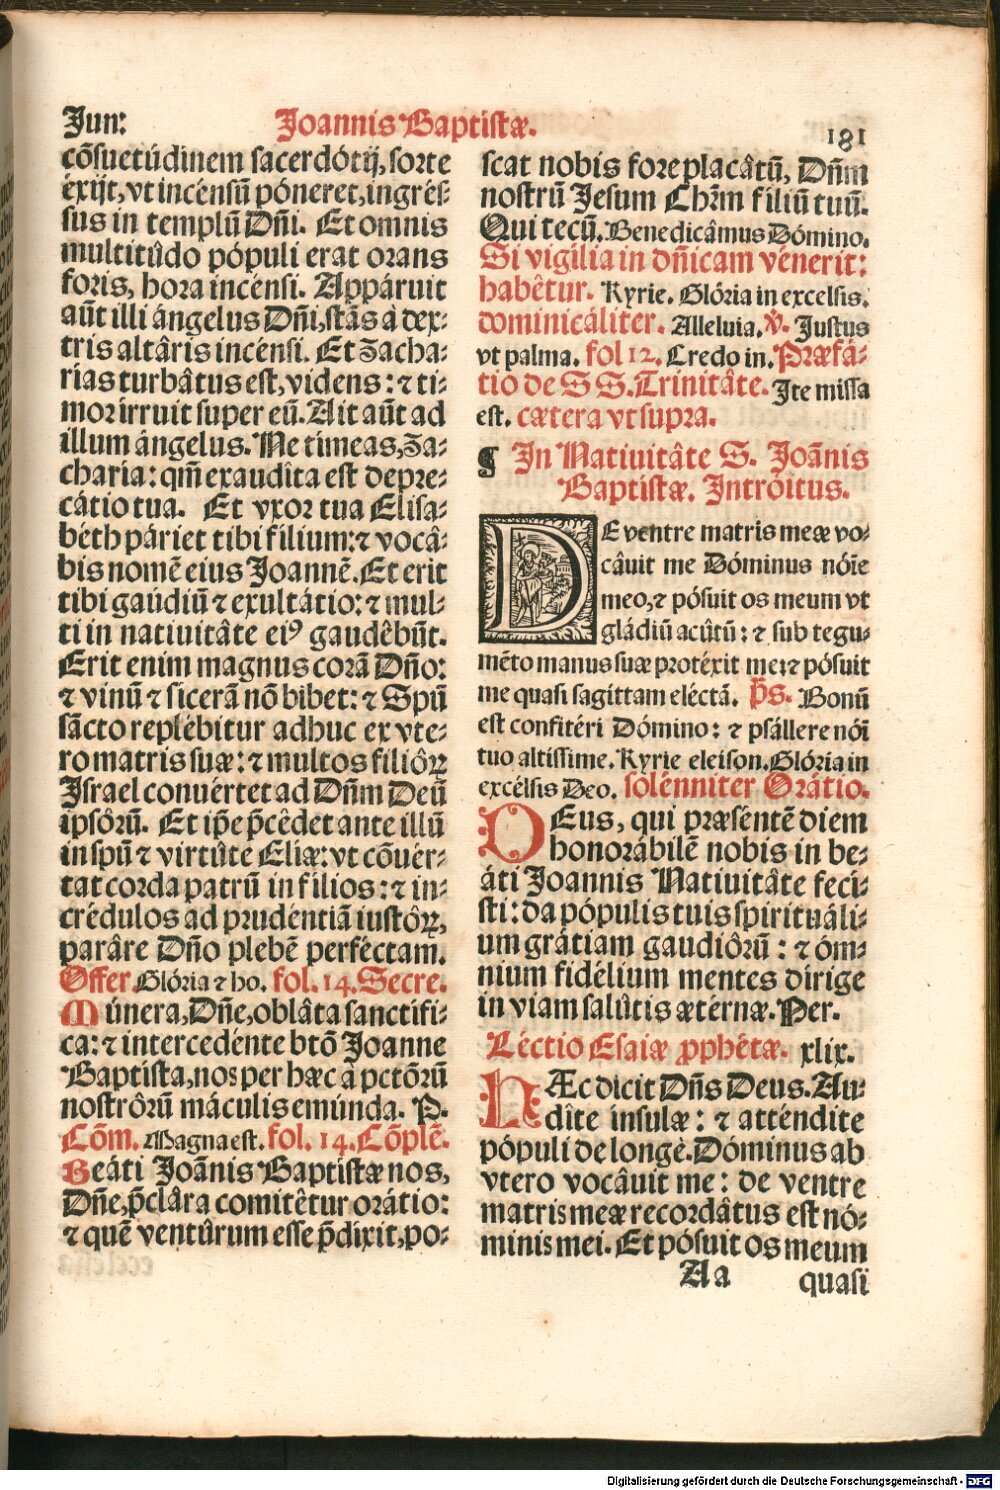 Jun:
Joannis Baptistæ.
181
cõsuetúdinem sacerdótij, sorte
éxijt, vt incénsũ póneret, ingrés-
sus in templũ Dñi. Et omnis
multitûdo pópuli erat orans
foris, hora incénsi. Appáruit
aũt illi ángelus Dñi, stãs â dex-
tris altâris incénsi. Et Zacha-
rías turbâtus est, videns: ⁊ ti-
mor írruit super eũ. Ait aũt ad
illum ángelus. Ne tímeas, Za-
charía: qm̃ exaudîta est depre-
cátio tua. Et vxor tua Elísa-
beth páriet tibi filium: ⁊ vocâ-
bis nomẽ eius Joannẽ. Et erit
tibi gaúdiũ ⁊ exultátio: ⁊ mul-
ti in natiuitâte eiꝰ gaudêbũt.
Erit enim magnus corã Dño:
⁊ vinũ ⁊ sícerã nõ bibet: ⁊ Spũ
sãcto replébitur adhuc ex vte-
ro matris suæ: ⁊ multos filiôꝝ
Jsrael conuértet ad Dñm Deũ
ipsôrũ. Et ip̃e p̃cêdet ante illũ
in spũ ⁊ virtûte Elíæ: vt cõuér-
tat corda patrũ in fílios: ⁊ in-
crédulos ad prudéntiã iustôꝝ,
parâre Dño plebẽ perféctam.
Offer. Glória ⁊ ho. fol. 14. Secre.
Múnera, Dñe, oblâta sanctífi-
ca: ⁊ intercedénte btõ Joanne
Baptista, nos per hæc â pctõrũ
nostrôrũ máculis emúnda. P.
Cõm. Magna est. fol. 14. Cõplẽ.
Beáti Joãnis Baptistæ nos,
Dñe, p̃clâra comitêtur orátio:
⁊ quẽ ventûrum esse p̃dixit, po-
scat nobis fore placâtũ, Dñm
nostrũ Jesum Chr̃m filiũ tuũ.
Qui tecũ. Benedicâmus Dómino.
Si vigília in dñicam vénerit:
habêtur. Kyrie. Glória in excelsis.
dominicáliter. Alleluia. ℣. Justus
vt palma. fol 12. Credo in. Præfá-
tio de S S. Trinitâte. Ite missa
est. cætera vt supra.
¶ In Natiuitâte S. Joãnis
Baptistæ. Intróitus.
DE ventre matris meæ vo-
câuit me Dóminus nóĩe
meo, ⁊ pósuit os meum vt
gládiũ acûtũ: ⁊ sub tegu-
mẽto manus suæ protéxit me: ⁊ pósuit
me quasi sagíttam eléctã. p̃s. Bonũ
est confitéri Dómino: ⁊ psállere nóĩ
tuo altíssime. Kyrie eleison. Glória in
excélsis Deo. solénniter Orátio.
DEus, qui præséntẽ diem
honorábilẽ nobis in be-
áti Joannis Natiuitâte feci-
sti: da pópulis tuis spirituáli-
um grátiam gaudiôrũ: ⁊ óm-
nium fidélium mentes dírige
in viam salûtis ætérnæ. Per.
Léctio Esaiæ ꝓphêtæ. xlix.
HÆc dicit Dñs Deus. Au-
dîte ínsulæ: ⁊ atténdite
pópuli de longè. Dóminus ab
vtero vocâuit me: de ventre
matris meæ recordâtus est nó-
minis mei. Et pósuit os meum
Aa
quasi
Digitalisierung gefördert durch die Deutsche Forschungsgemeinschaft - DFG